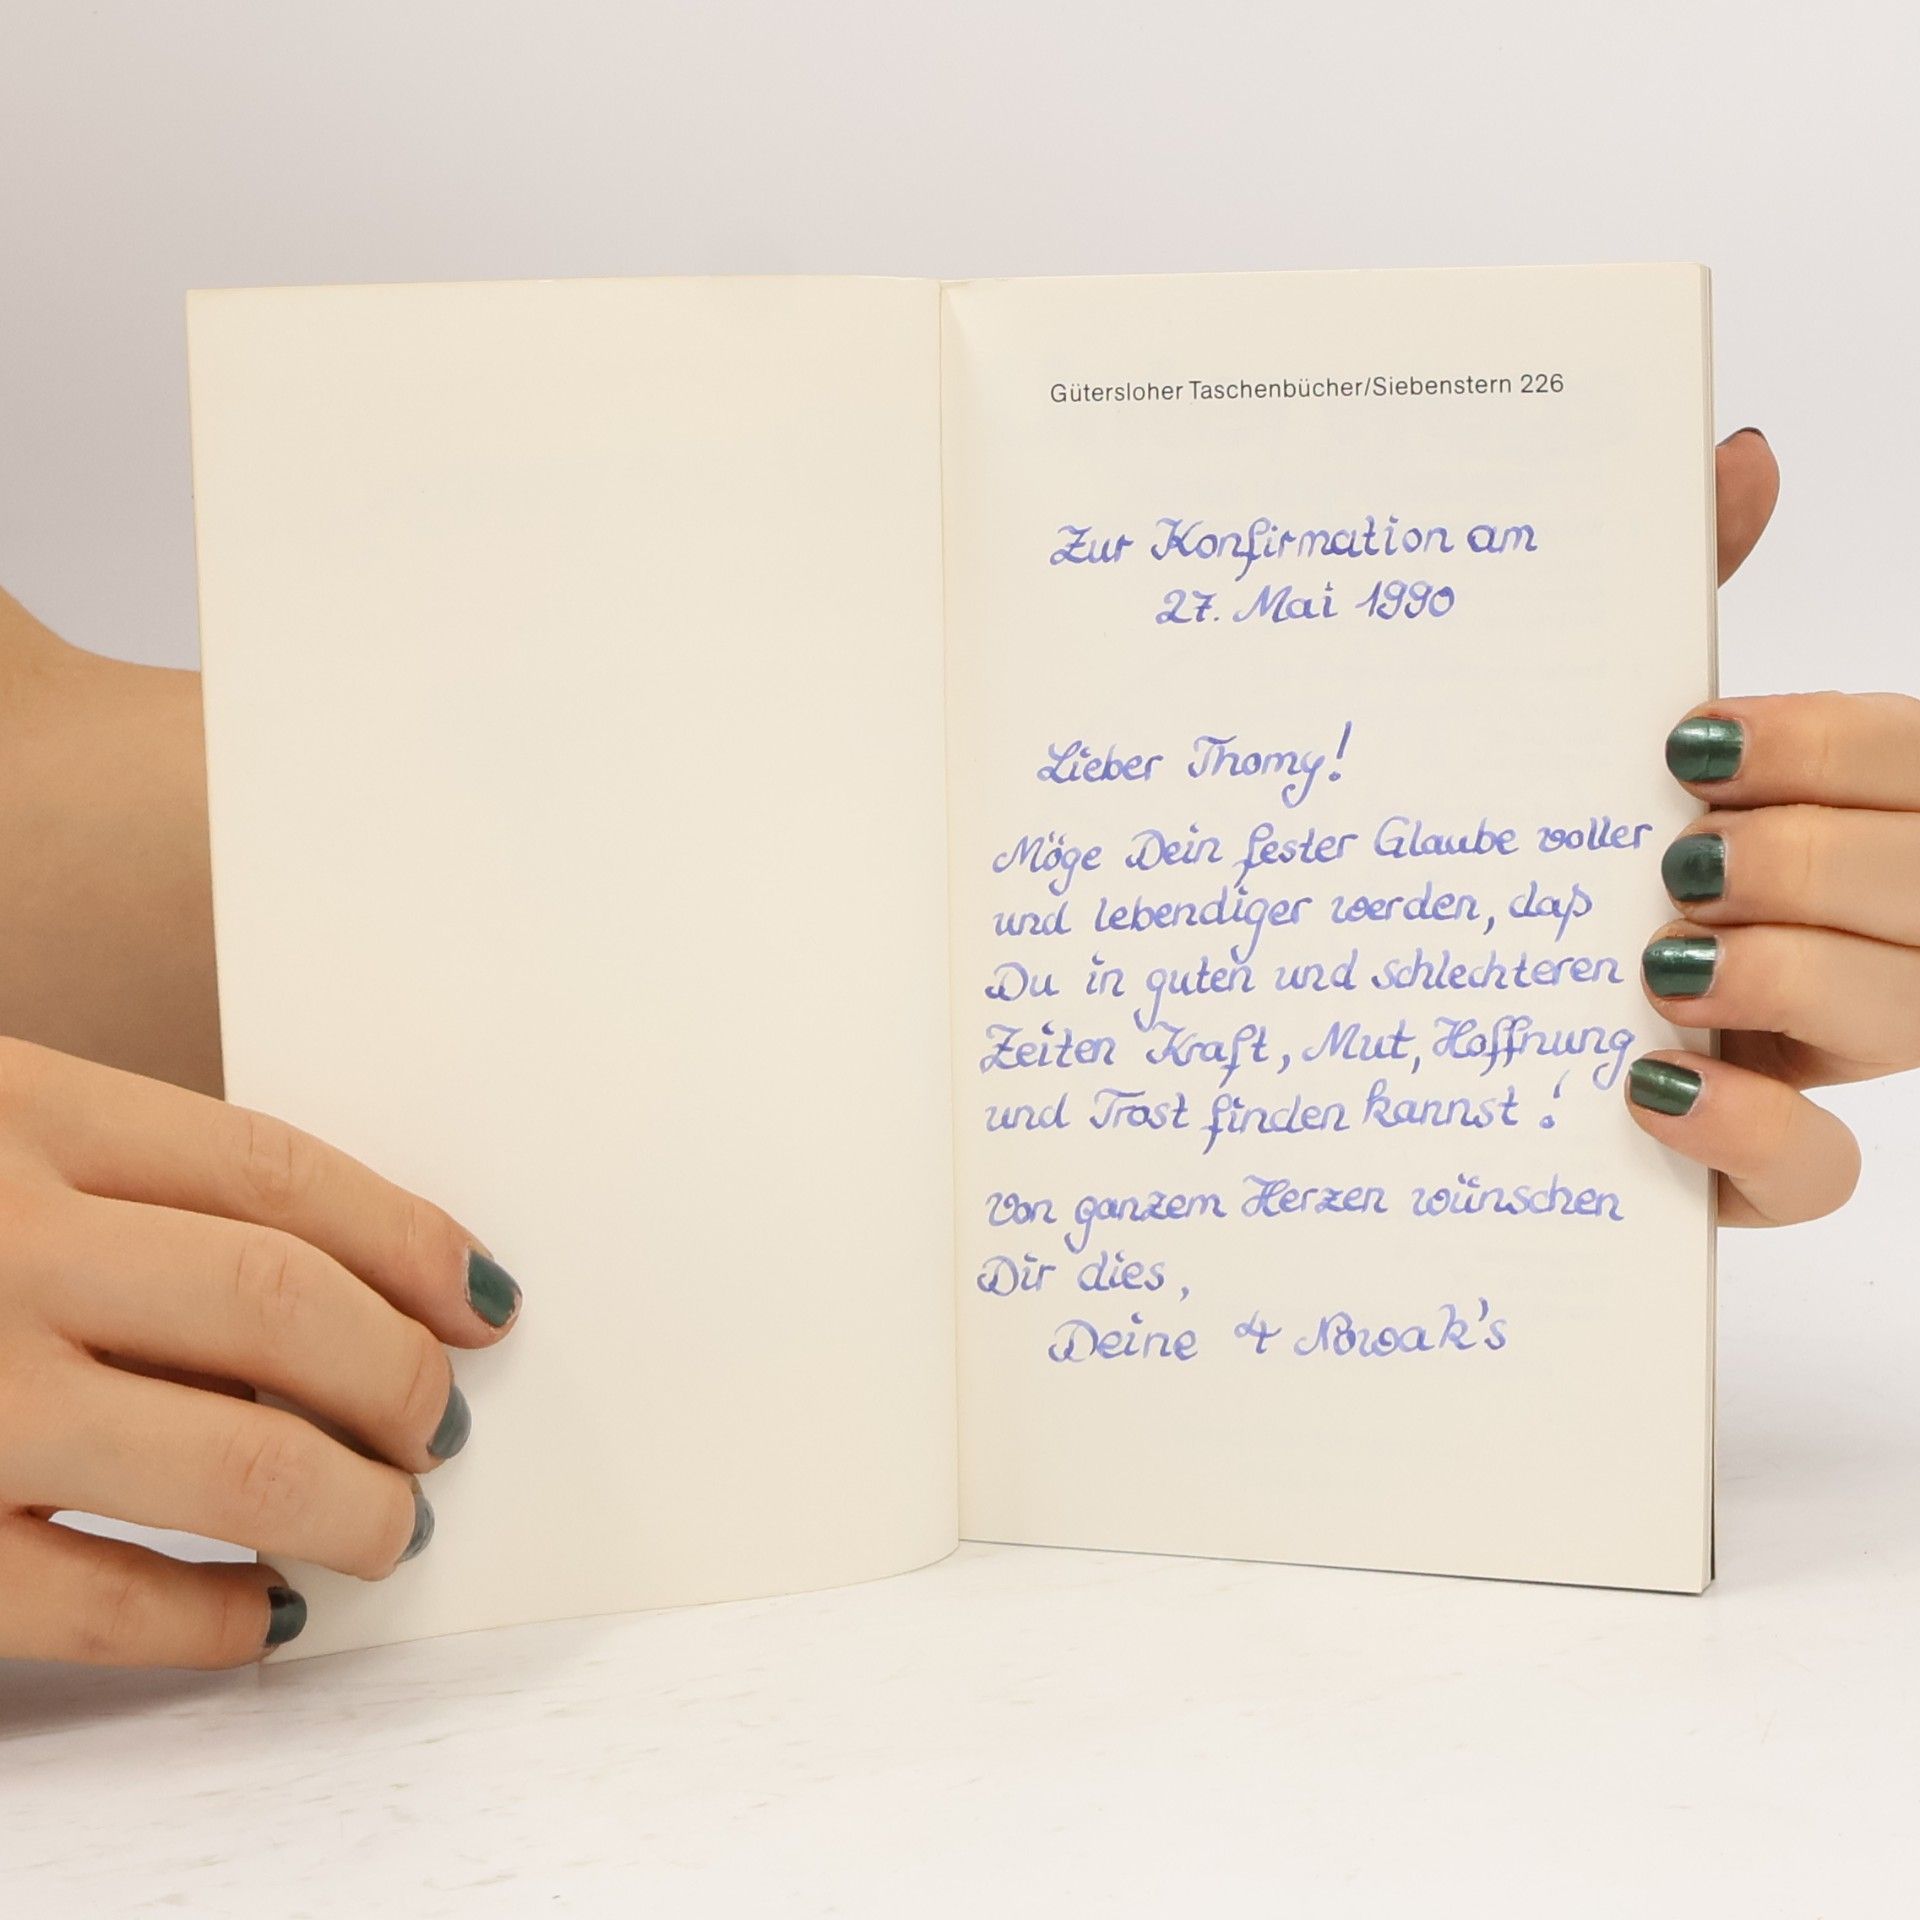 Gütersloher Taschenbücher/Siebenstern 226
Zur Konfirmation am
27. Mai 1990
Lieber Thomy!
Möge Dein fester Glaube voller
und lebendiger werden, daß
Du in guten und schlechteren
Zeiten Kraft, Mut, Hoffnung
und Trost finden kannst!
Von ganzem Herzen wünschen
Dir dies,
Deine 4 Nowak's